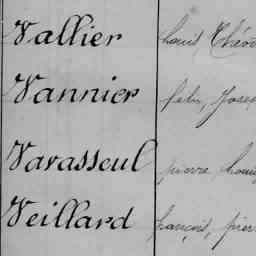 Vallier Louis, Théo
Vannier felix, Josep
Varasseul pierre Louis
Veillard françois, pier